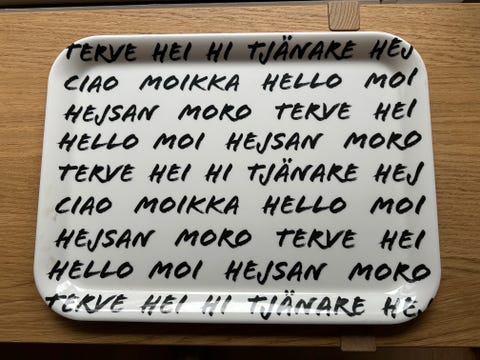 TERVE HEI HI TJÄNARE HEJ
CIAO MOIKKA HELLO MOI
HEJSAN MORO TERVE HEI
HELLO MOI HEJSAN MORO
TERVE HEI HI TJÄNARE HEJ
CIAO MOIKKA HELLO MOI
HEJSAN MORO TERVE HEI
HELLO MOI HEJSAN MORO
TERVE HEI HI TJÄNARE HEJ